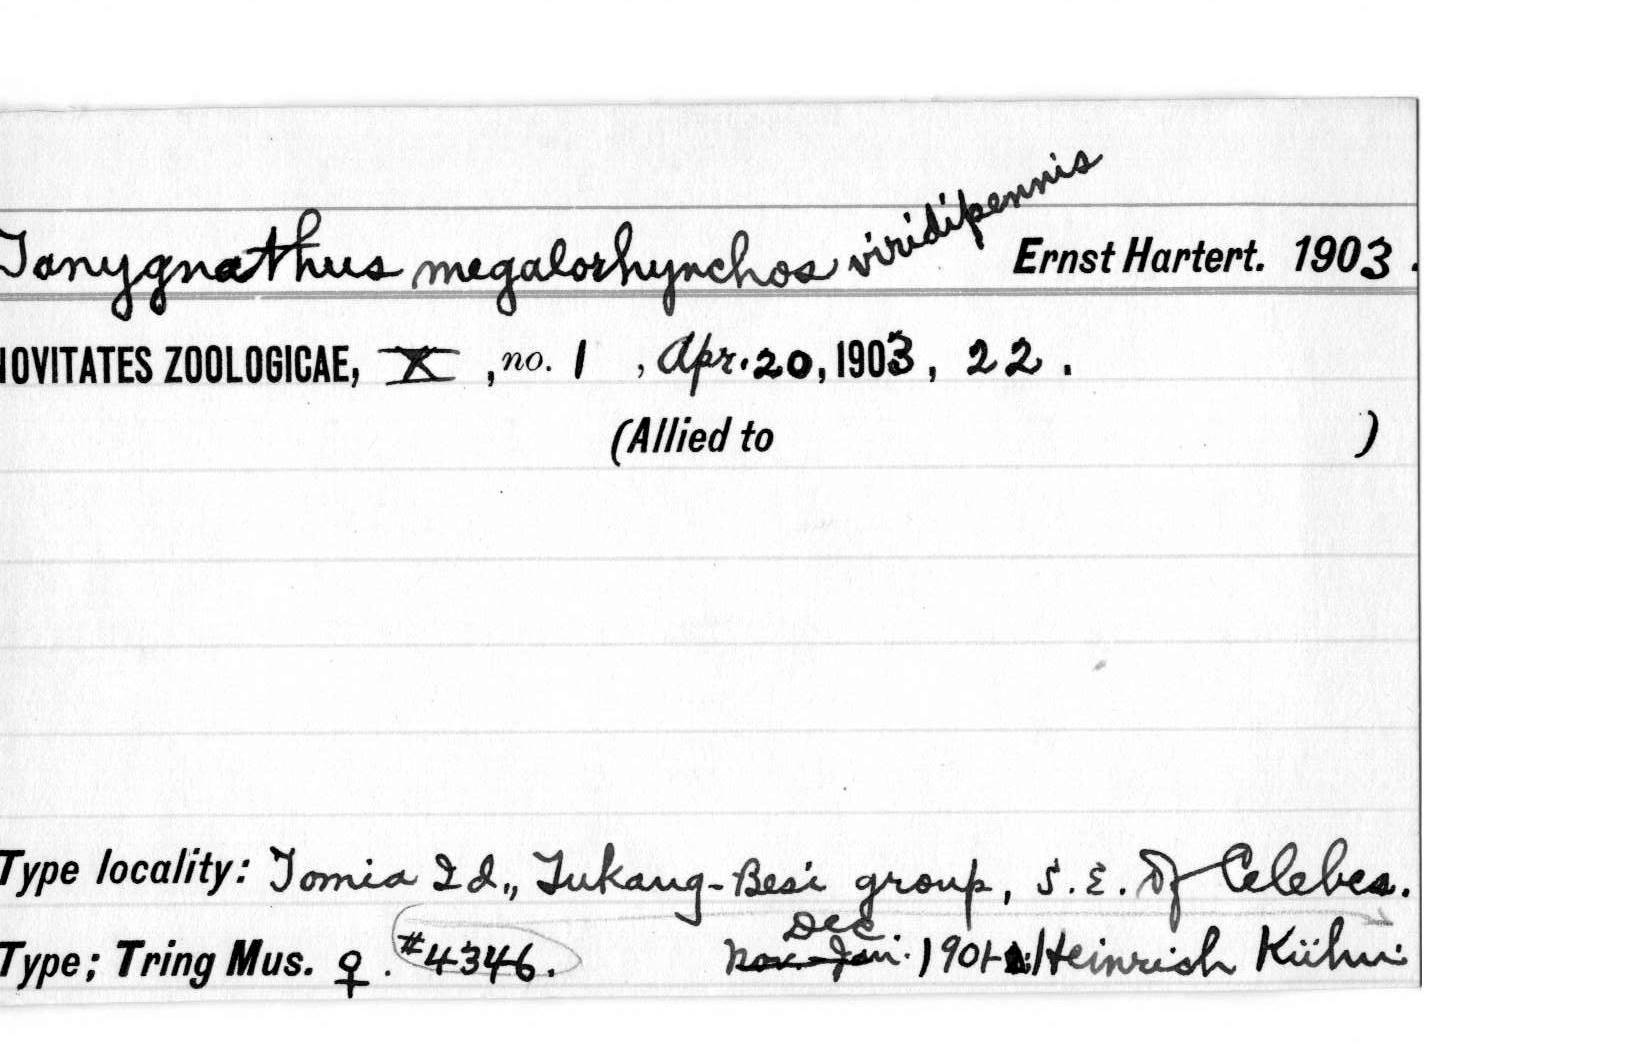 Tanygnathus megalorhynchos viridipennis Ernst Hartert. 1903.
NOVITATES ZOOLOGICAE, X, no. 1, Apr. 20, 1903, 22.
(Allied to )
Type locality: Tomia Id., Tukang-Besi group, S. E. of Celebes.
Dec
Type; Tring Mus. ♀. #4346. Nov-Jan. 1901 Heinrich Kühn